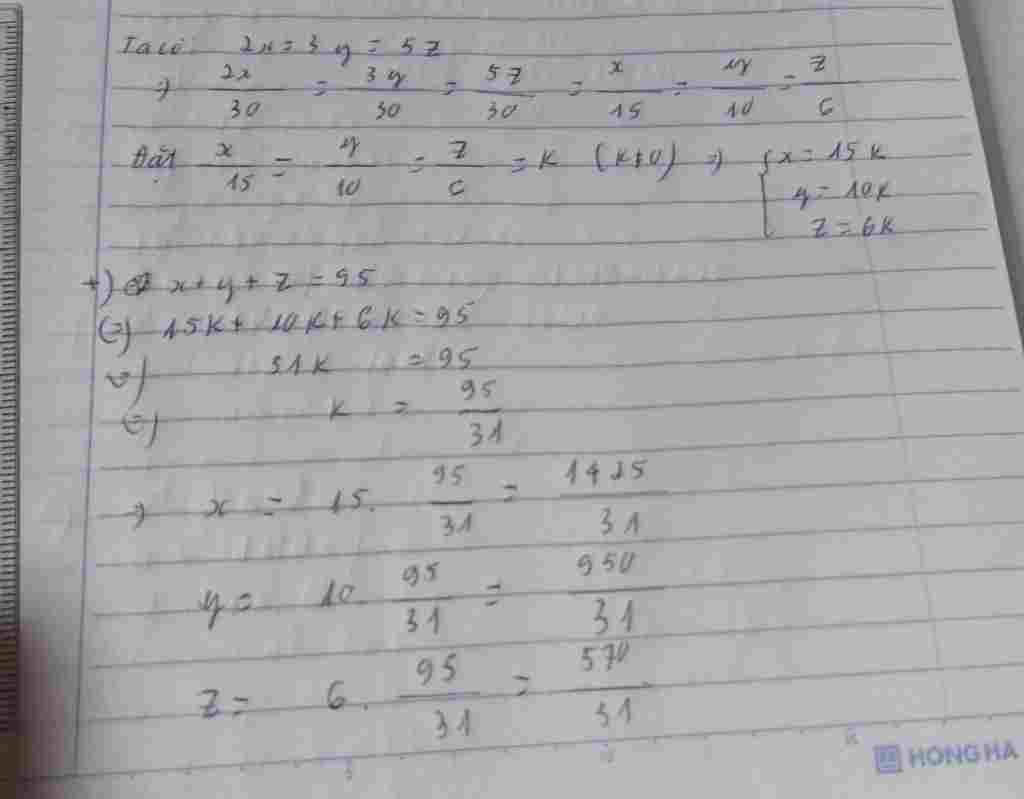 Ta có: 2x = 3y = 5z
=> 2x/30 = 3y/30 = 5z/30 = x/15 = y/10 = z/6
Đặt x/15 = y/10 = z/6 = k (k≠0) => { x = 15k
y = 10k
z = 6k
+) x + y + z = 95
(=) 15k + 10k + 6k = 95
(=) 31k = 95
(=) k = 95/31
=> x = 15. 95/31 = 1425/31
y = 10. 95/31 = 950/31
z = 6. 95/31 = 570/31
HONG HA